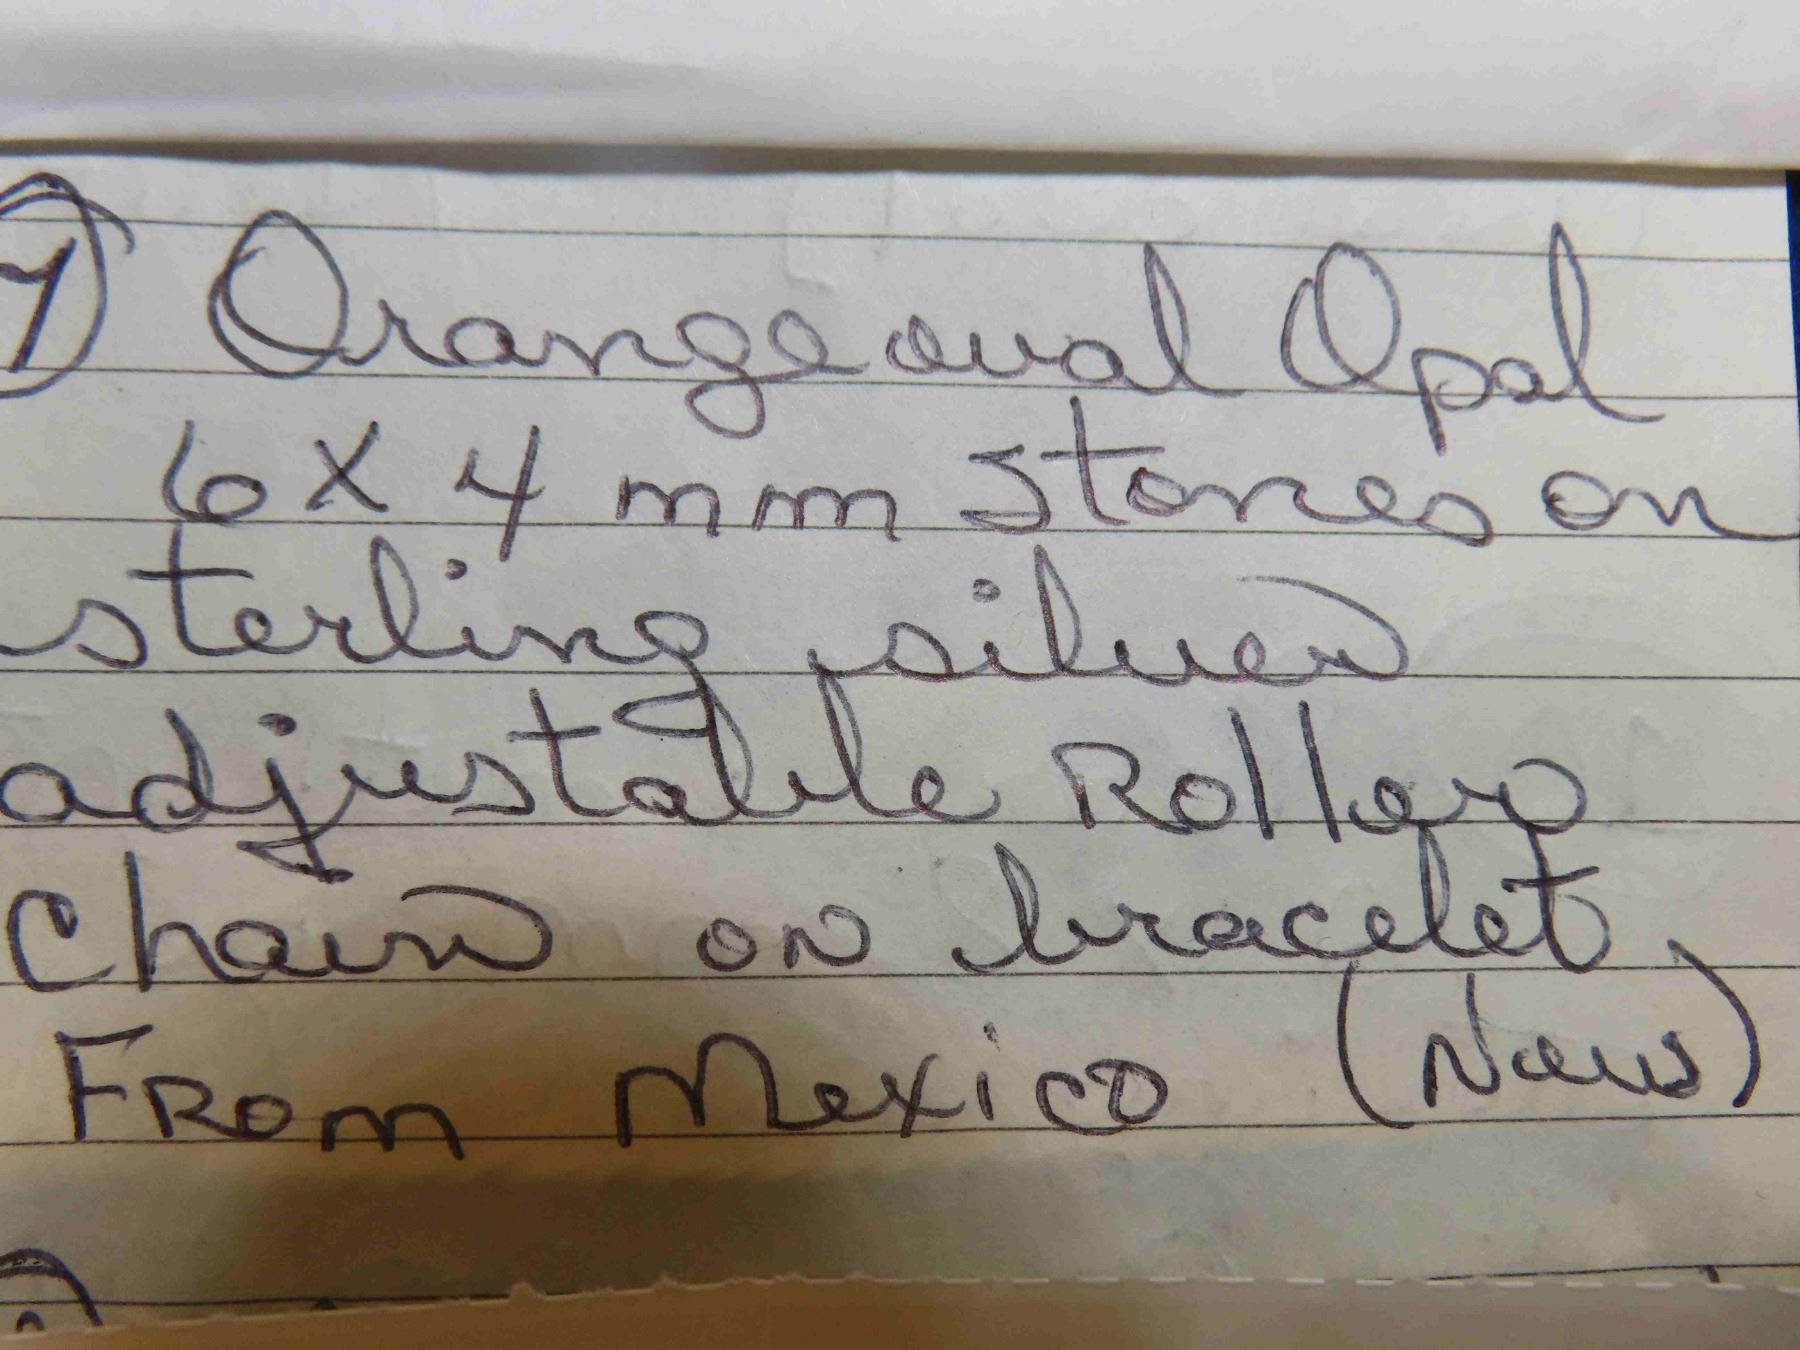 7) Orange oval Opal
6 x 4 mm stones on
sterling silver
adjustable Roller
Chain on bracelet,
FROM Mexico (New)